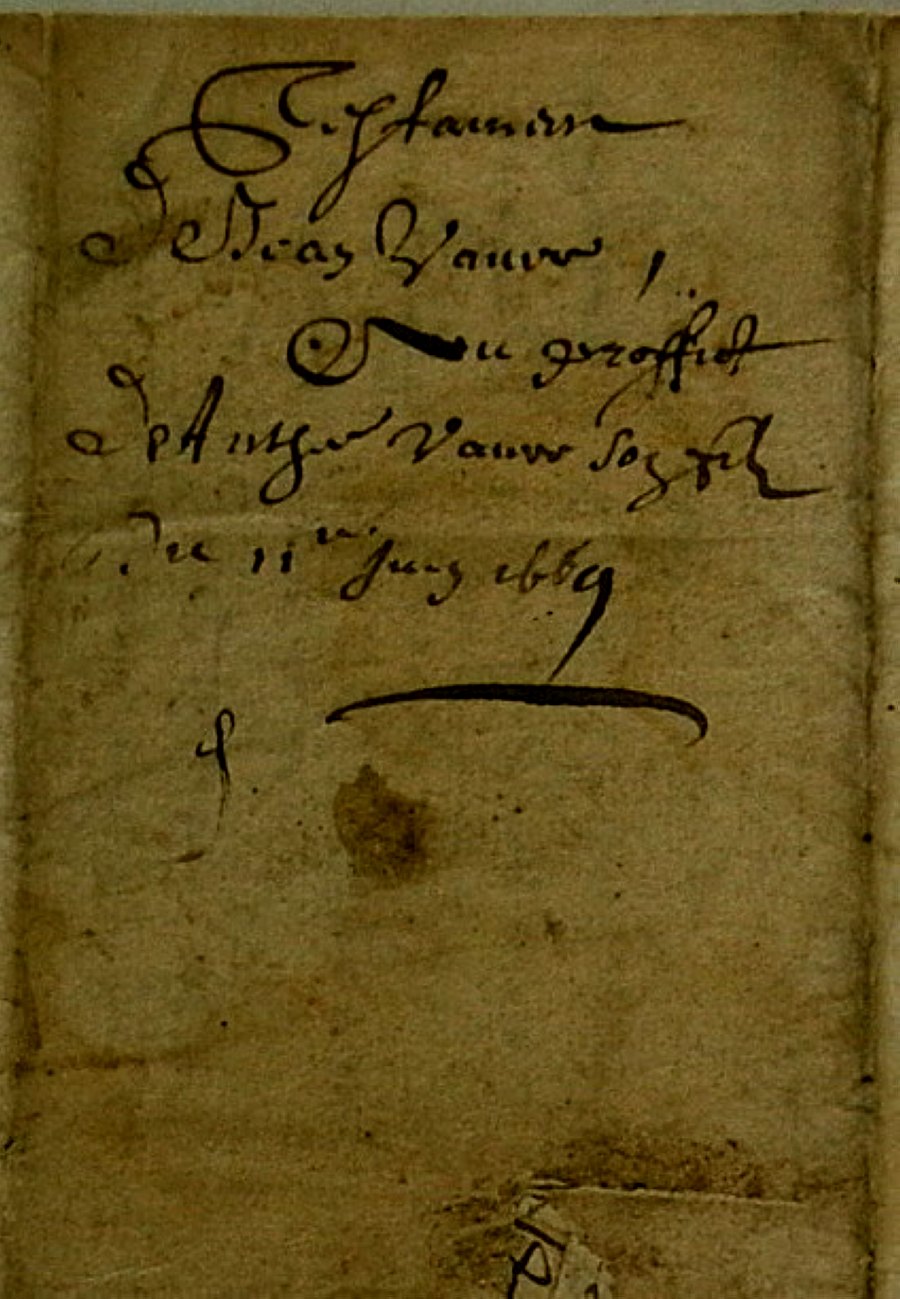 Testament
De Jean Vauve,
Au proffict
De Anthe Vauve son filz
Du 11me Juing 1669